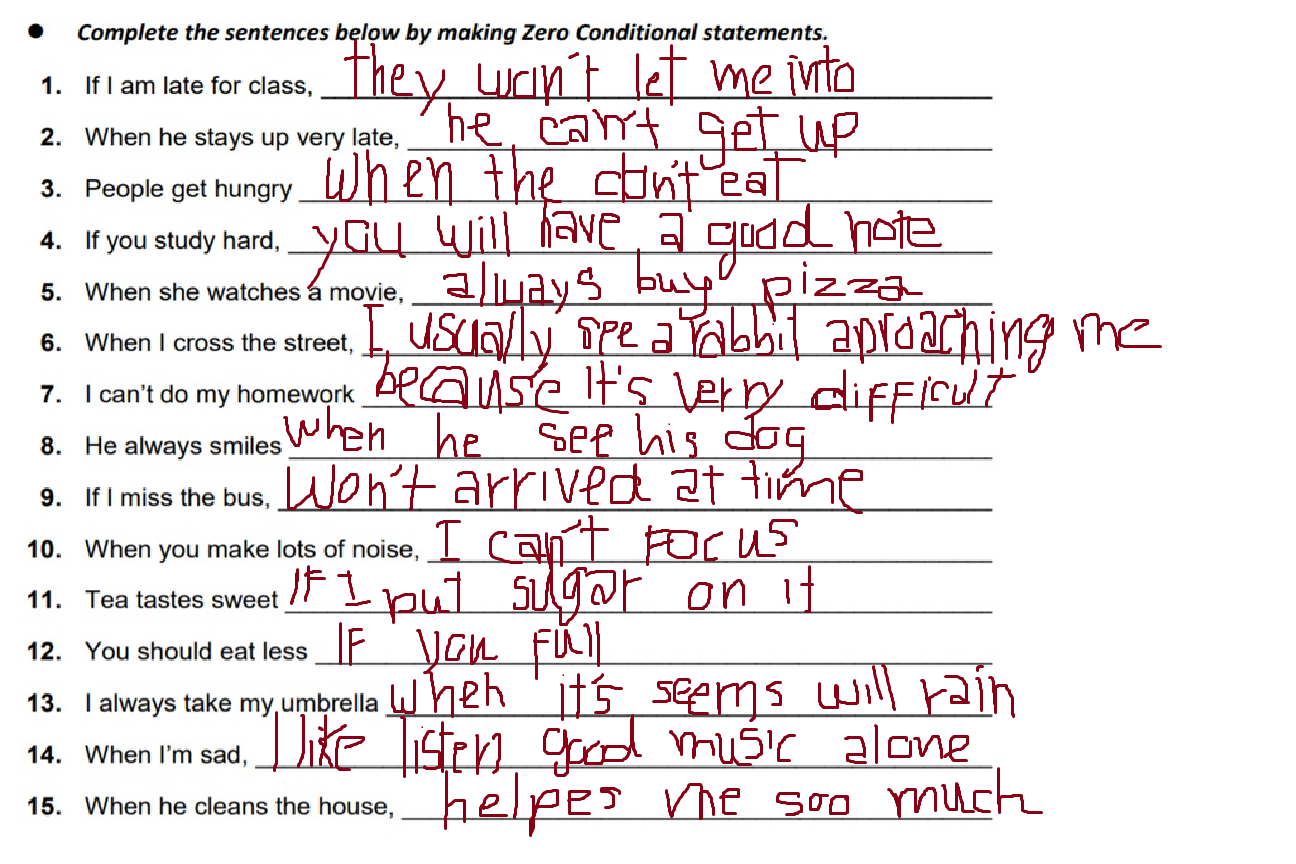 ● Complete the sentences below by making Zero Conditional statements.
1. If I am late for class, they won't let me into
2. When he stays up very late, he can't get up
3. People get hungry when the don't eat
4. If you study hard, you will have a good note
5. When she watches a movie, always buy pizza
6. When I cross the street, I usually see a rabbit aproaching me
7. I can't do my homework because it's very difficult
8. He always smiles when he see his dog
9. If I miss the bus, won't arrived at time
10. When you make lots of noise, I can't focus
11. Tea tastes sweet If I put sugar on it
12. You should eat less IF you full
13. I always take my umbrella when it's seems will rain
14. When I'm sad, I like listen good music alone
15. When he cleans the house, helpes me soo much